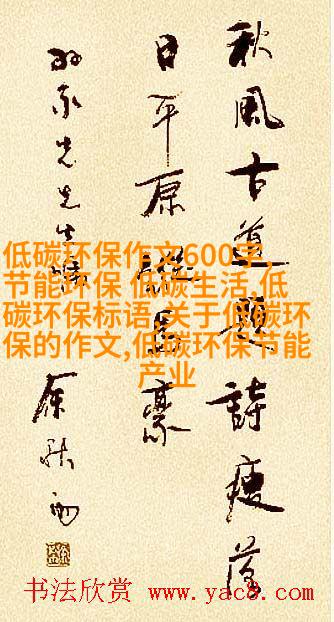 秋風古道題詩瘦落
日平原縱馬豪
先生
余秋雨
低碳环保作文600字,
节能环保 低碳生活,低
碳环保标语,关于低碳环
保的作文,低碳环保节能
产业
书法欣赏 www.yac8.com